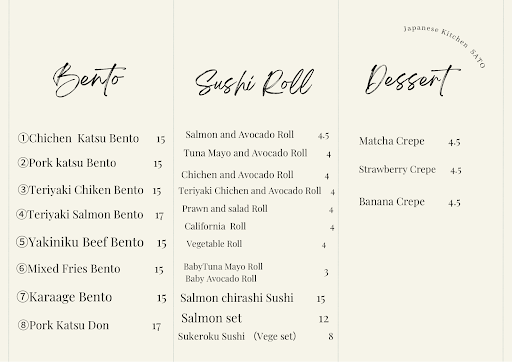 Japanese Kitchen SATO
Bento
①Chichen Katsu Bento 15
②Pork katsu Bento 15
③Teriyaki Chiken Bento 15
④Teriyaki Salmon Bento 17
⑤Yakiniku Beef Bento 15
⑥Mixed Fries Bento 15
⑦Karaage Bento 15
⑧Pork Katsu Don 17
Sushi Roll
Salmon and Avocado Roll 4.5
Tuna Mayo and Avocado Roll 4
Chichen and Avocado Roll 4
Teriyaki Chichen and Avocado Roll 4
Prawn and salad Roll 4
California Roll 4
Vegetable Roll 4
BabyTuna Mayo Roll 3
Baby Avocado Roll
Salmon chirashi Sushi 15
Salmon set 12
Sukeroku Sushi (Vege set) 8
Dessert
Matcha Crepe 4.5
Strawberry Crepe 4.5
Banana Crepe 4.5